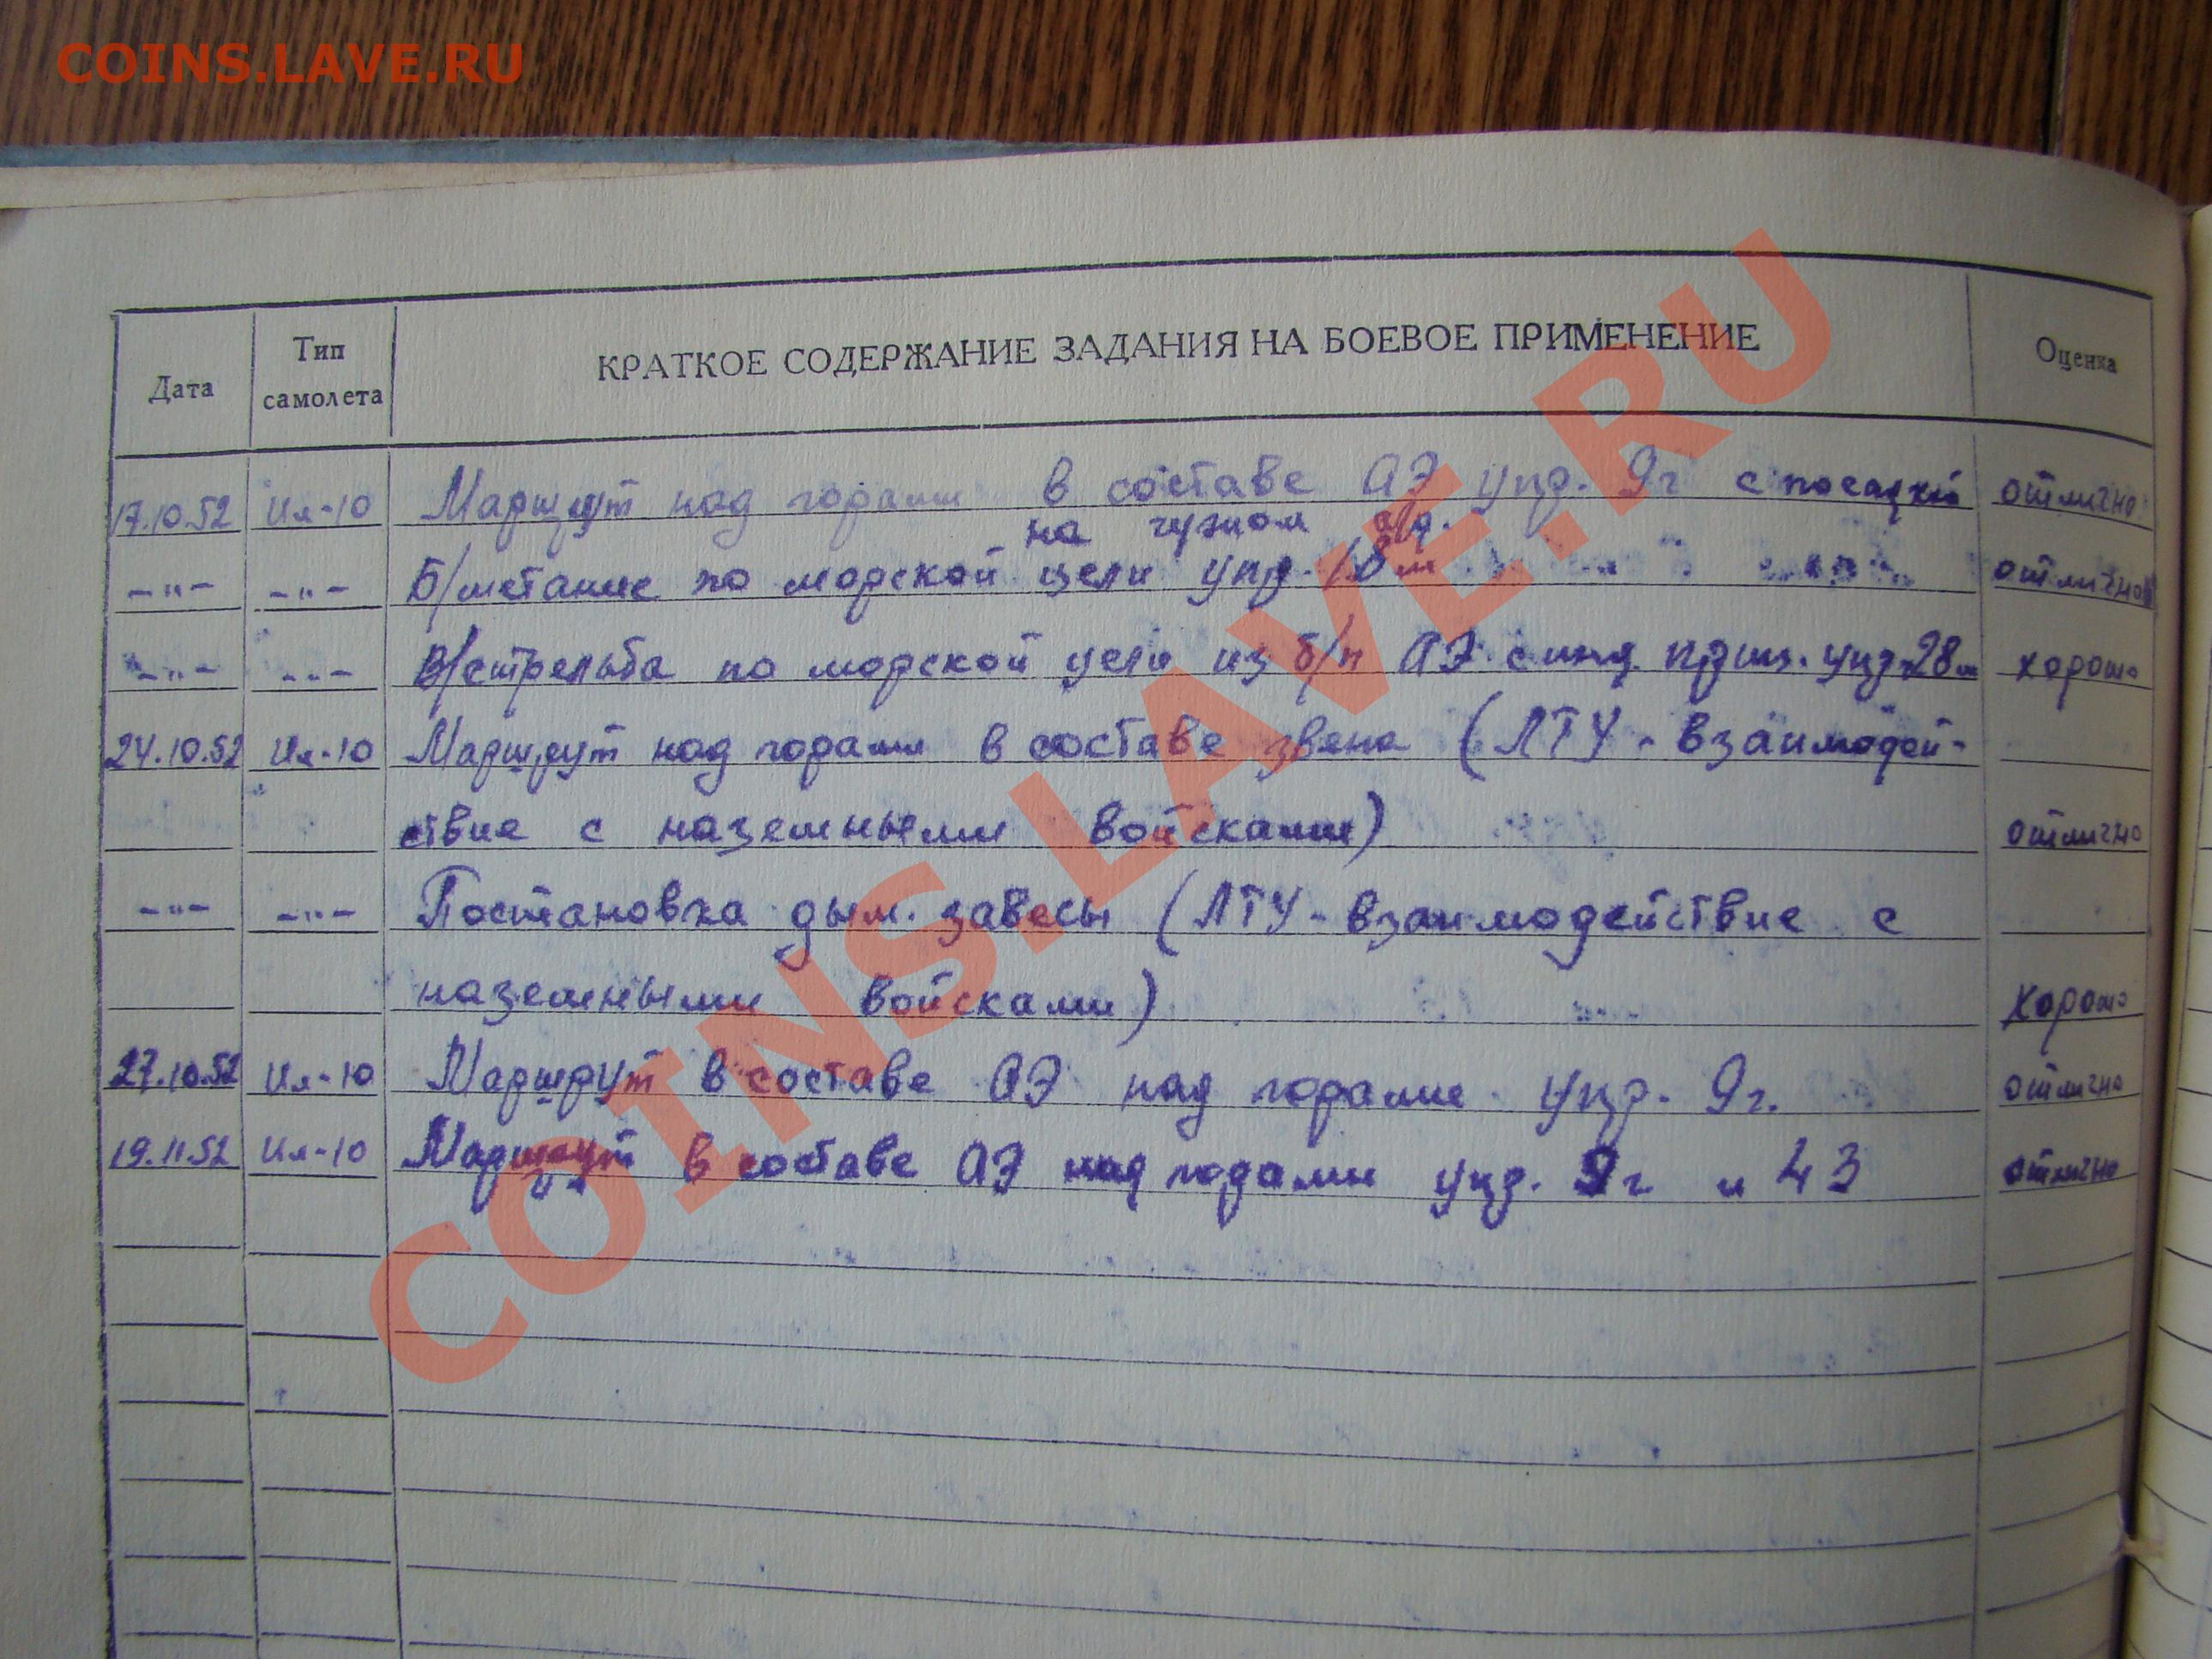 COINS.LAVE.RU
Дата Тип самолета КРАТКОЕ СОДЕРЖАНИЕ ЗАДАНИЯ НА БОЕВОЕ ПРИМЕНЕНИЕ Оценка
17.10.52 Ил-10 Маршрут над горами в составе АЭ упр. 9г с посадкой отлично
на чужом а/д.
-"- -"- Б/метание по морской цели упр. 18м отлично
-"- -"- В/стрельба по морской цели из б/п АЭ с инд. приц. упр. 28м хорошо
24.10.52 Ил-10 Маршрут над горами в составе звена (ЛТУ - взаимодей-
ствие с наземными войсками) отлично
-"- -"- Постановка дым. завесы (ЛТУ - взаимодействие с
наземными войсками) хорошо
27.10.52 Ил-10 Маршрут в составе АЭ над горами упр. 9г. отлично
19.11.52 Ил-10 Маршрут в составе АЭ над горами упр. 9г и 43 отлично
COINS.LAVE.RU